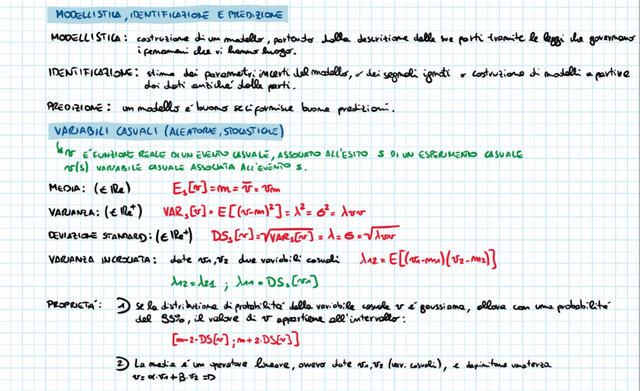 MODELLISTICA, IDENTIFICAZIONE E PREDIZIONE
MODELLISTICA: costruzione di un modello, partendo dalla descrizione delle sue parti tramite le leggi che governano
i fenomeni che vi hanno luogo.
IDENTIFICAZIONE: stima dei parametri incerti del modello, o dei segnali ignoti o costruzione di modelli a partire
dai dati anziché dalle parti.
PREDIZIONE: un modello è buono se ci fornisce buone predizioni.
VARIABILI CASUALI (ALEATORIE, STOCASTICHE)
↳ v È FUNZIONE REALE DI UN EVENTO CASUALE, ASSOCIATO ALL'ESITO S DI UN ESPERIMENTO CASUALE
v(s) VARIABILE CASUALE ASSOCIATA ALL'EVENTO S.
MEDIA: (∈ Re) Es[v] = m = v̄ = vm
VARIANZA: (∈ Re⁺) VARs[v] = E[(v-m)²] = λ² = σ² = λvv
DEVIAZIONE STANDARD: (∈ Re⁺) DSs[v] = √VARs[v] = λ = σ = √λvv
VARIANZA INCROCIATA: date v1, v2 due variabili casuali λ12 = E[(v1-m1)(v2-m2)]
λ12 = λ21 ; λ11 = DSs[v1]
PROPRIETÀ: 1) Se la distribuzione di probabilità della variabile casuale v è gaussiana, allora con una probabilità
del 95%, il valore di v appartiene all'intervallo:
[m-2·DS[v] ; m+2·DS[v]]
2) La media è un operatore lineare, ovvero date v1, v2 (var. casuali), e definitane una terza
v = α·v1 + β·v2 =>